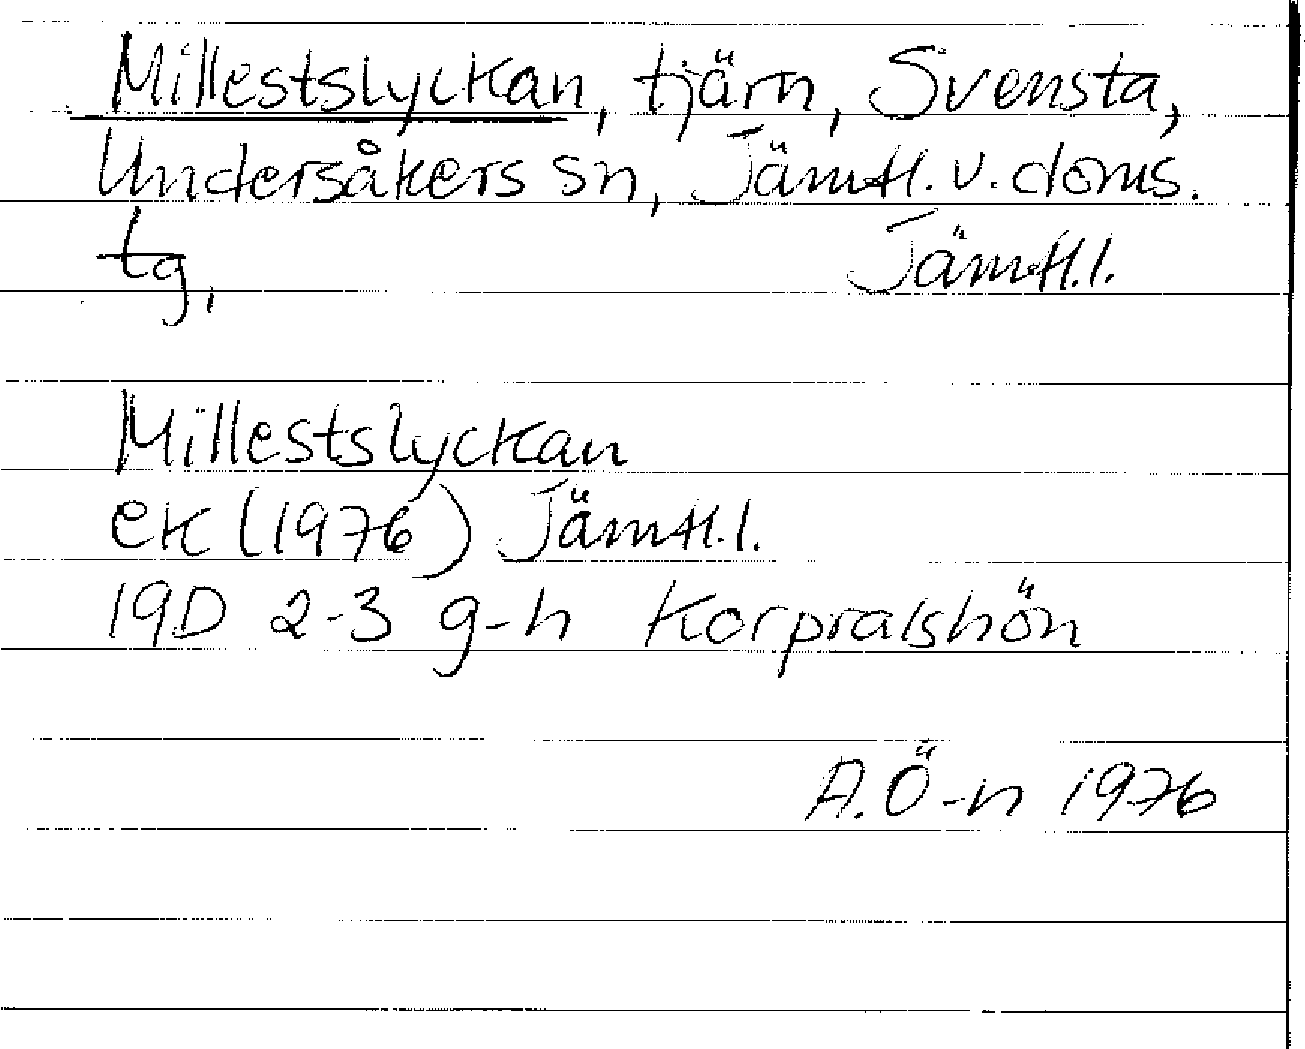 Millestslyckan, tjärn, Svensta,
Undersåkers sn, Jämtl. v. doms.
tg, Jämtl.l.
Millestslyckan
ek (1976) Jämtl.l.
19D 2-3 g-h Korpralshön
A.Ö-n 1976